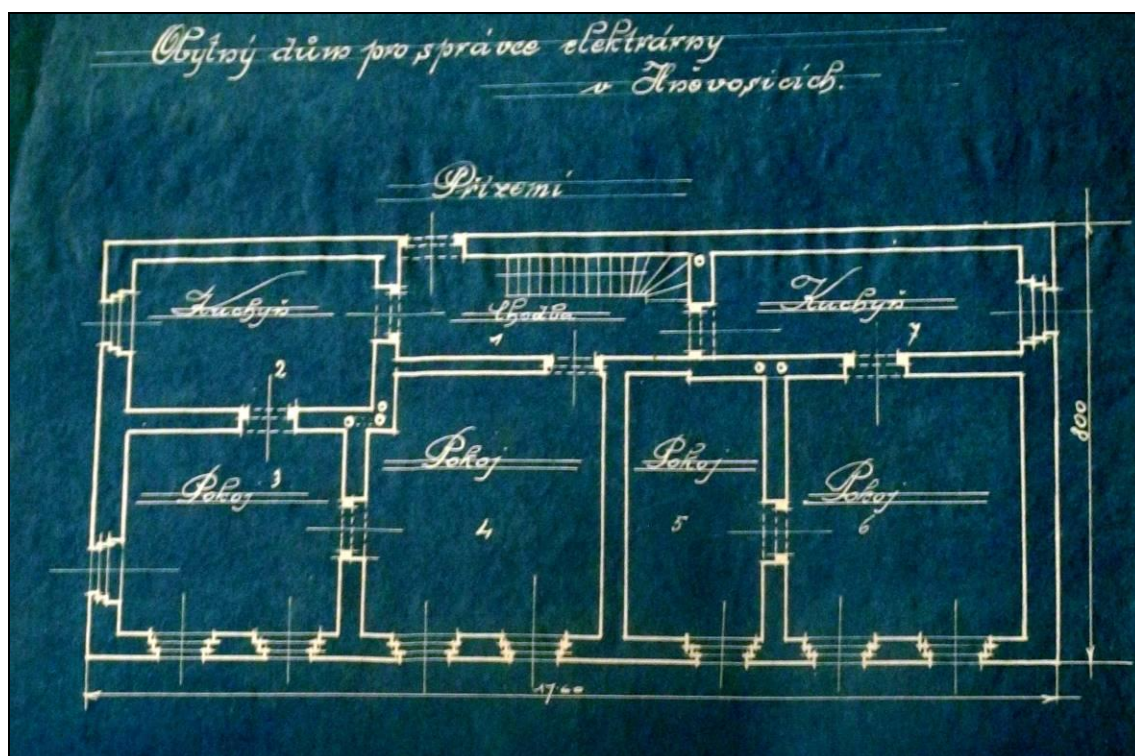 Obytný dům pro správce elektrárny
v Hněvošicích.
Přízemí
Kuchyň
Chodba
Kuchyň
1
7
2
Pokoj
3
Pokoj
4
Pokoj
5
Pokoj
6
800
1760